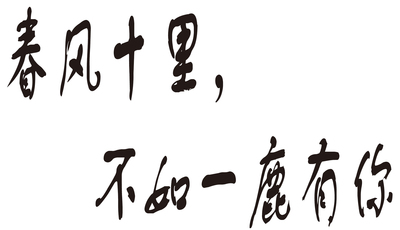 春风十里，
不如一鹿有你